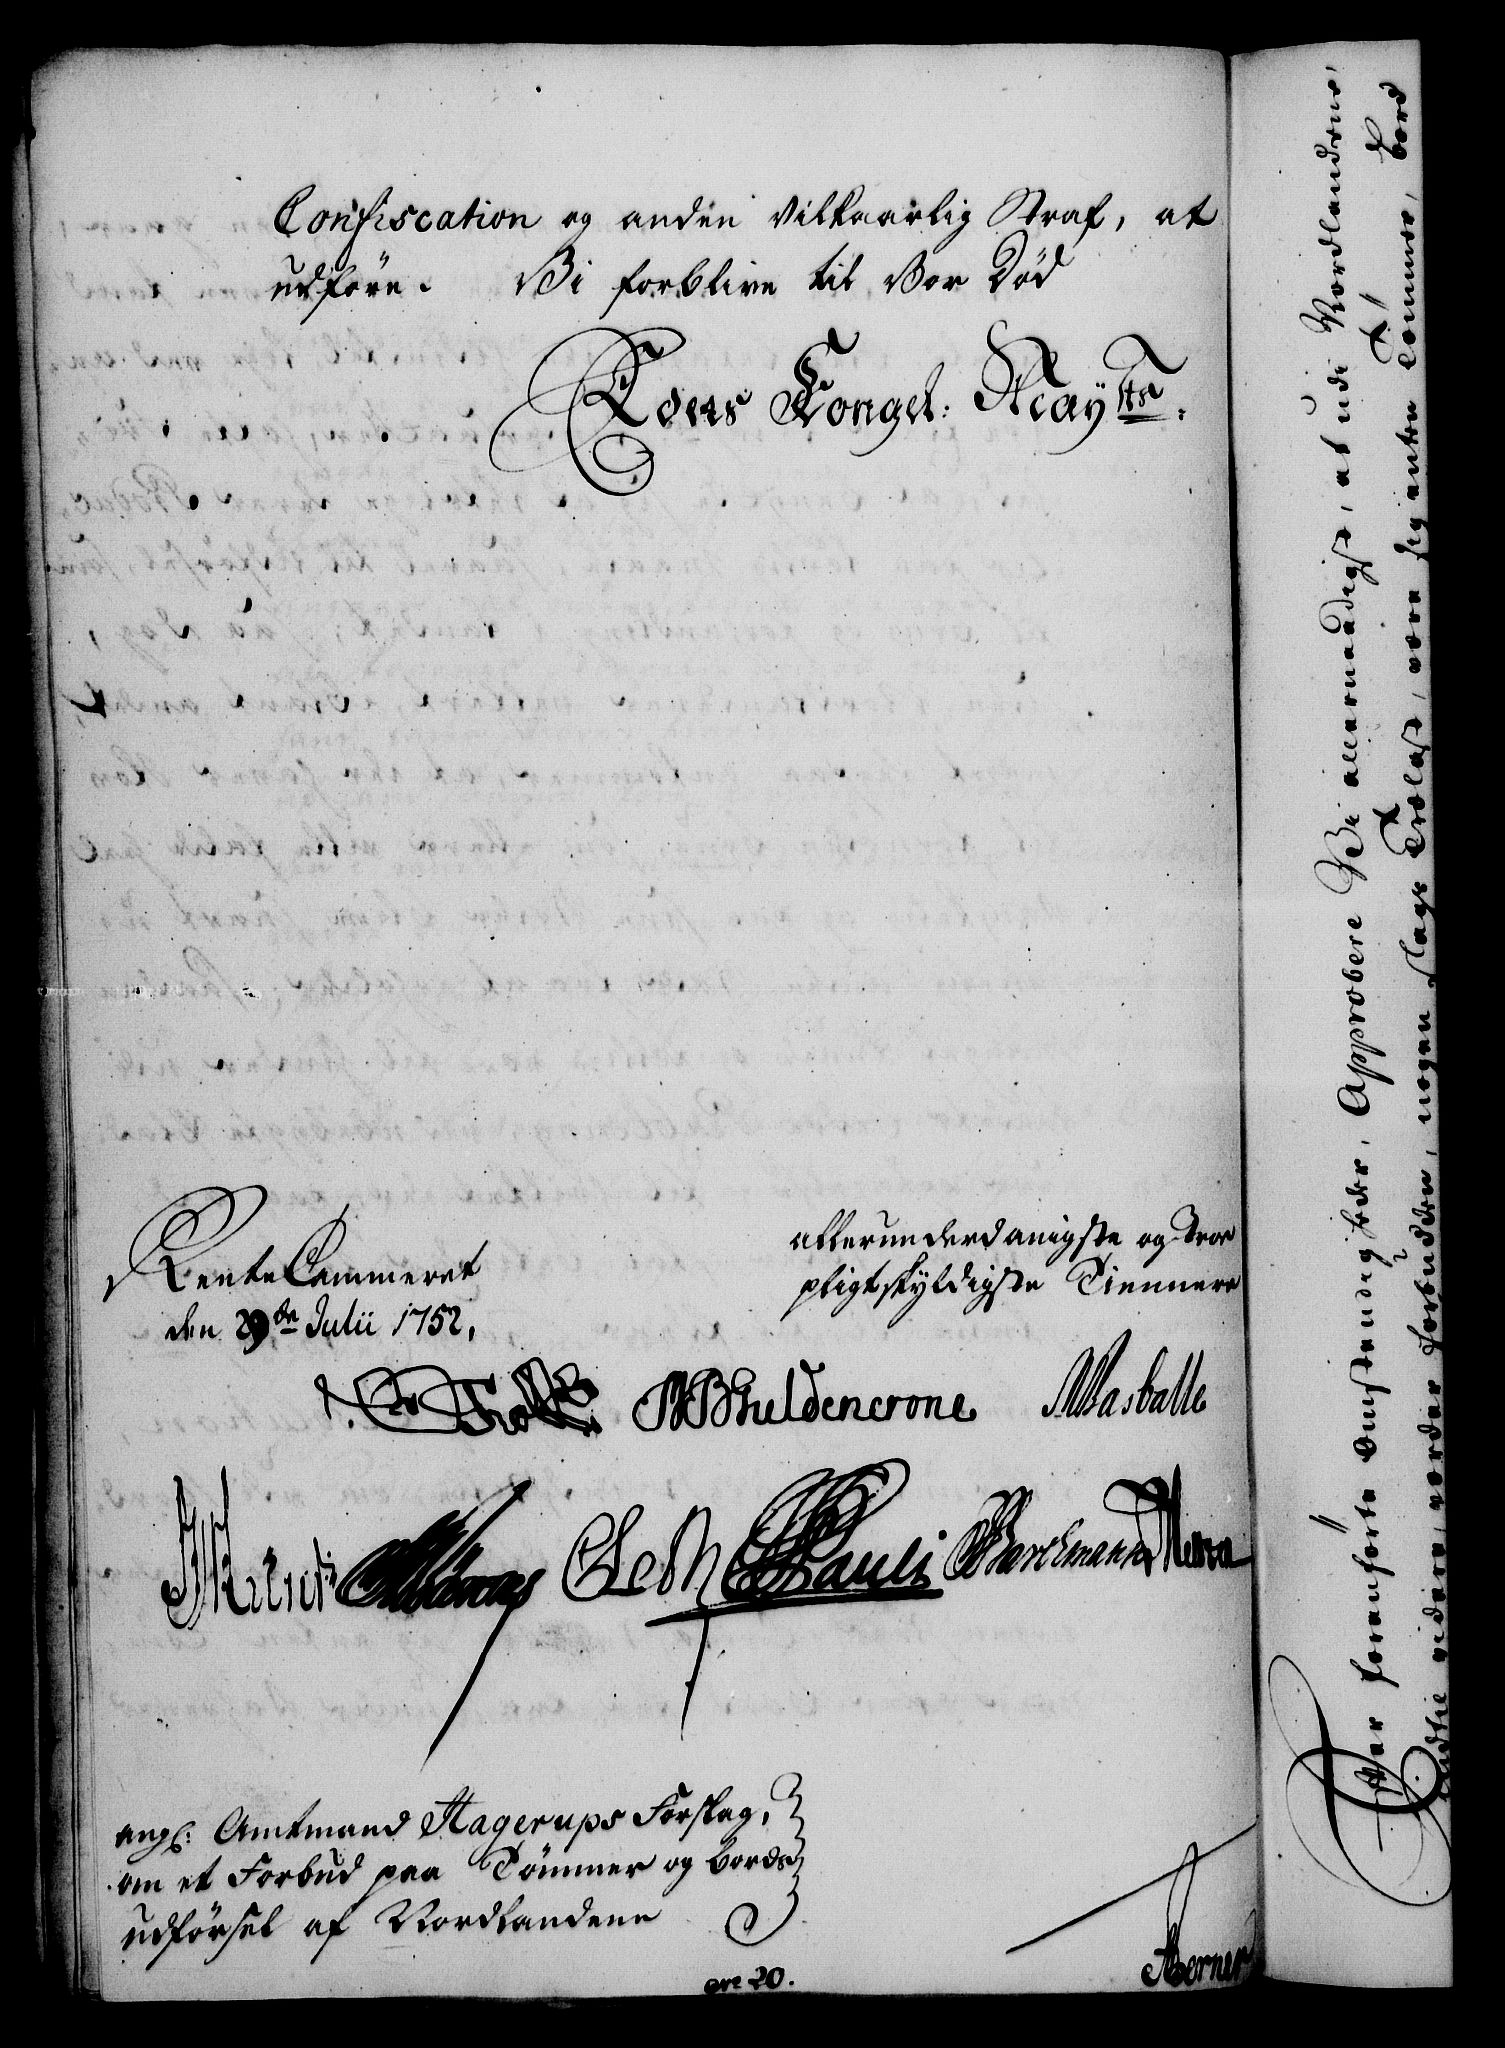 Confiscation og anden vilkaarlig Straf, at
udføre. Vi forblive til Vor Død
Eders Kongel: Mayts.
RenteCammeret
den 29de Julii 1752.
allerunderdanigste og Troe
pligtskyldigste Tiennere
Güldencrone
Masballe
Leth Pauli Barchmann
angl: Amtmand Hagerups Forslag,
om et Forbud paa Tømmer og Bords
udførsel af Nordlandene
20.
Berner
Efter foranførte Omstændigheder, Approbere Vi allernaadigst, at udi Nordlandene,
indtil videre, vorder forbuden, nogen slags Trælast, være sig enten Tømmer, Bord